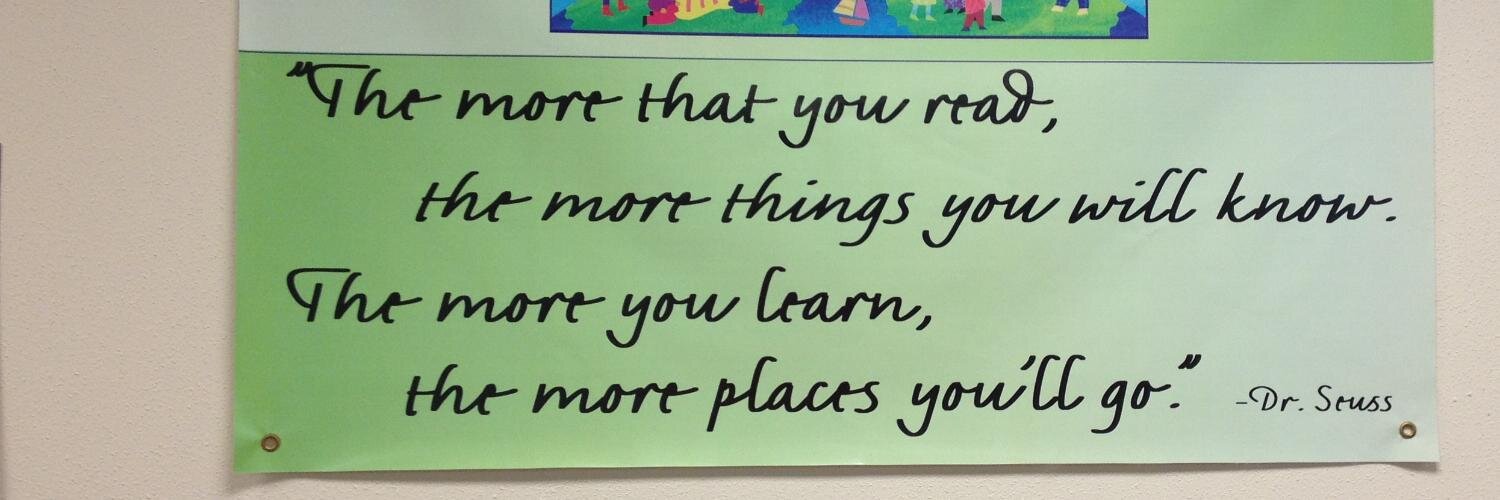 "The more that you read,
the more things you will know.
The more you learn,
the more places you'll go."
-Dr. Seuss